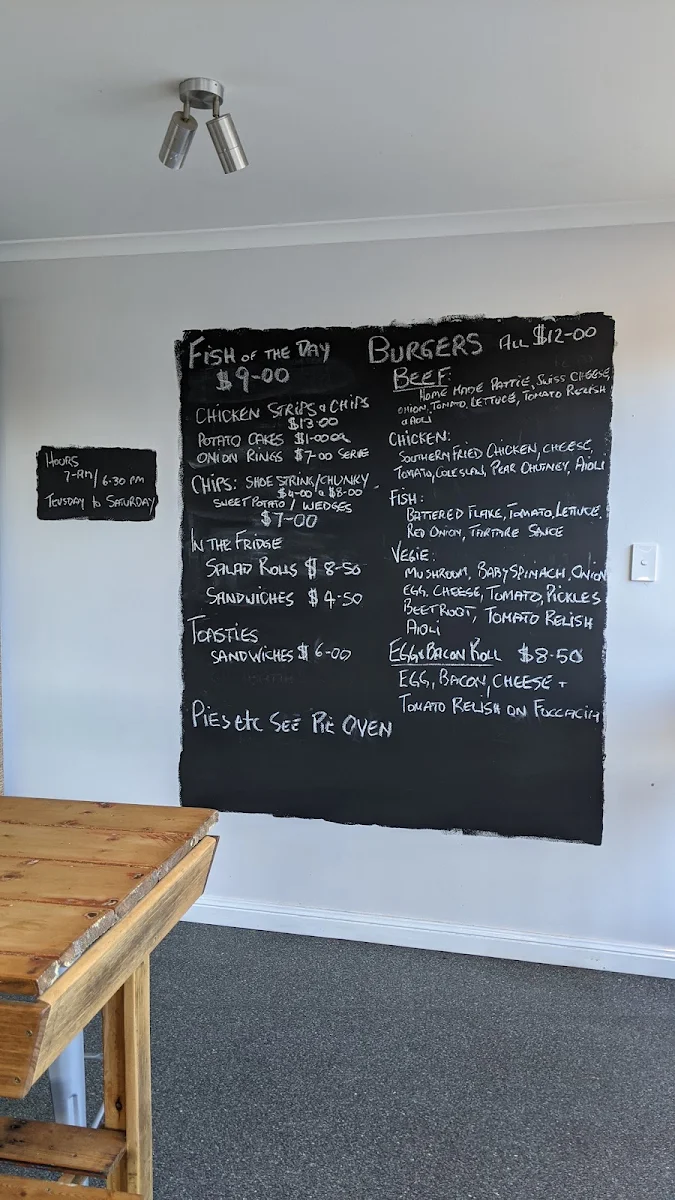 HOURS
7-AM/6.30 PM
TEUSDAY to SATURDAY
FISH OF THE DAY
$9-00
CHICKEN STRIPS & CHIPS
$13.00
POTATO CAKES $1-00 ea
ONION RINGS $7-00 SERVE
CHIPS: SHOE STRING/CHUNKY
$4-00 & $8-00
SWEET POTATO / WEDGES
$7-00
IN THE FRIDGE
SALAD ROLLS $8-50
SANDWICHES $4.50
TOASTIES
SANDWICHES $6-00
PIES etc SEE PIE OVEN
BURGERS ALL $12-00
BEEF:
HOME MADE PATTIE, SWISS CHEESE,
ONION, TOMATO, LETTUCE, TOMATO RELISH
& AIOLI
CHICKEN:
SOUTHERN FRIED CHICKEN, CHEESE,
TOMATO, COLESLAW, PEAR CHUTNEY, AIOLI
FISH:
BATTERED FLAKE, TOMATO, LETTUCE,
RED ONION, TARTARE SAUCE
VEGIE:
MUSHROOM, BABY SPINACH, ONION
EGG, CHEESE, TOMATO, PICKLES
BEETROOT, TOMATO RELISH
AIOLI
EGG & BACON ROLL $8-50
EGG, BACON, CHEESE +
TOMATO RELISH ON FOCCACIA